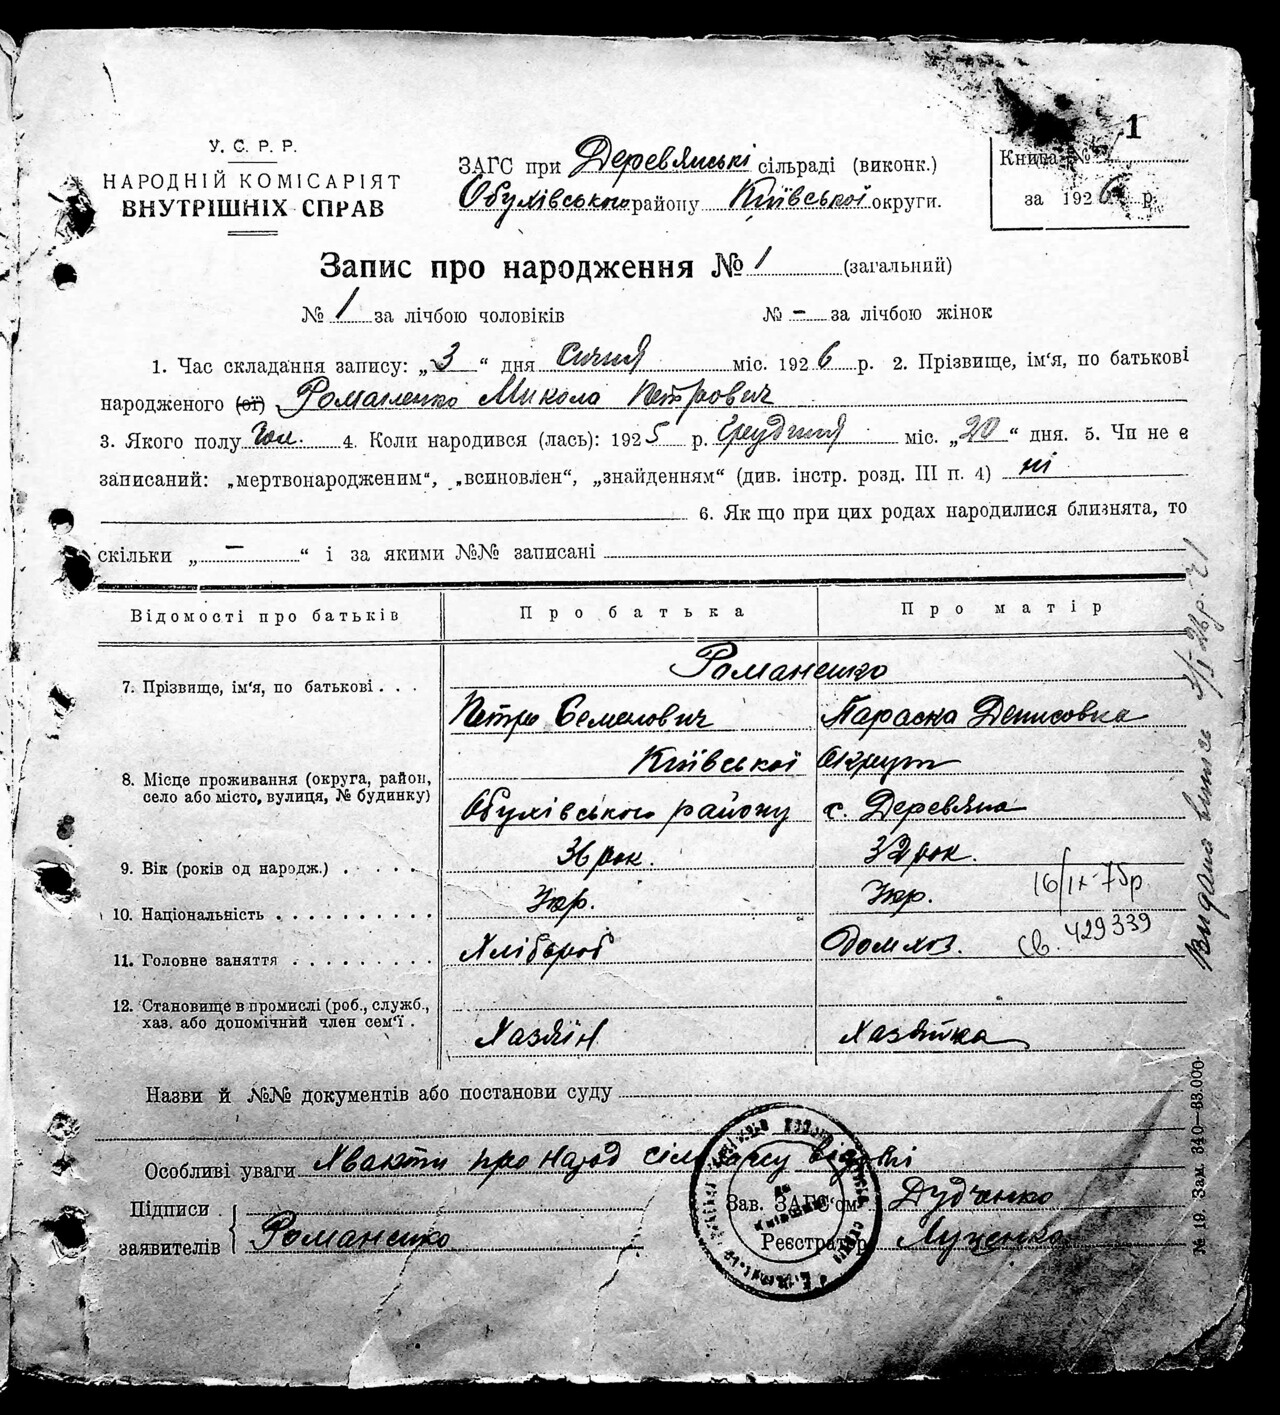 1
У. С. Р. Р.
НАРОДНІЙ КОМІСАРІЯТ
ВНУТРІШНІХ СПРАВ
ЗАГС при Деревянські сільраді (виконк.)
Обухівського району Київської округи.
Книга №
за 1926 р.
Запис про народження № 1 (загальний)
№ 1 за лічбою чоловіків № - за лічбою жінок
1. Час складання запису: „3“ дня січня міс. 1926 р. 2. Прізвище, ім‘я, по батькові
народженого (ої) Романенко Микола Петрович
3. Якого полу Чол. 4. Коли народився (лась): 1925 р. грудня міс. „20“ дня. 5. Чи не є
записаний: „мертвонародженим“, „всиновлен“, „знайденням“ (див. інстр. розд. III п. 4) ні
6. Як що при цих родах народилися близнята, то
скільки „ - “ і за якими №№ записані
Відомості про батьків Про батька Про матір
Романенко
7. Прізвище, ім‘я, по батькові . . .
Петро Семенович Параска Денисовна
Київської Округи
8. Місце проживання (округа, район,
село або місто, вулиця, № будинку)
Обухівського району с. Деревяна
36 рок. 32 рок.
9. Вік (років од народж.) . . . . .
Укр. Укр. 16/IX-75р.
10. Національність . . . . . . . . . .
Хлібороб Домхоз. св. 429339
11. Головне заняття . . . . . . . . .
12. Становище в промислі (роб., служб.,
хаз. або допомічний член сем‘ї .
Хазяїн Хазяйка
Назви й №№ документів або постанови суду
Особливі уваги про народ
Підписи
заявителів Романенко
Зав. ЗАГС‘ом Дудченко
Реєстратор Луценко
№ 19. Зам. 340—33.000